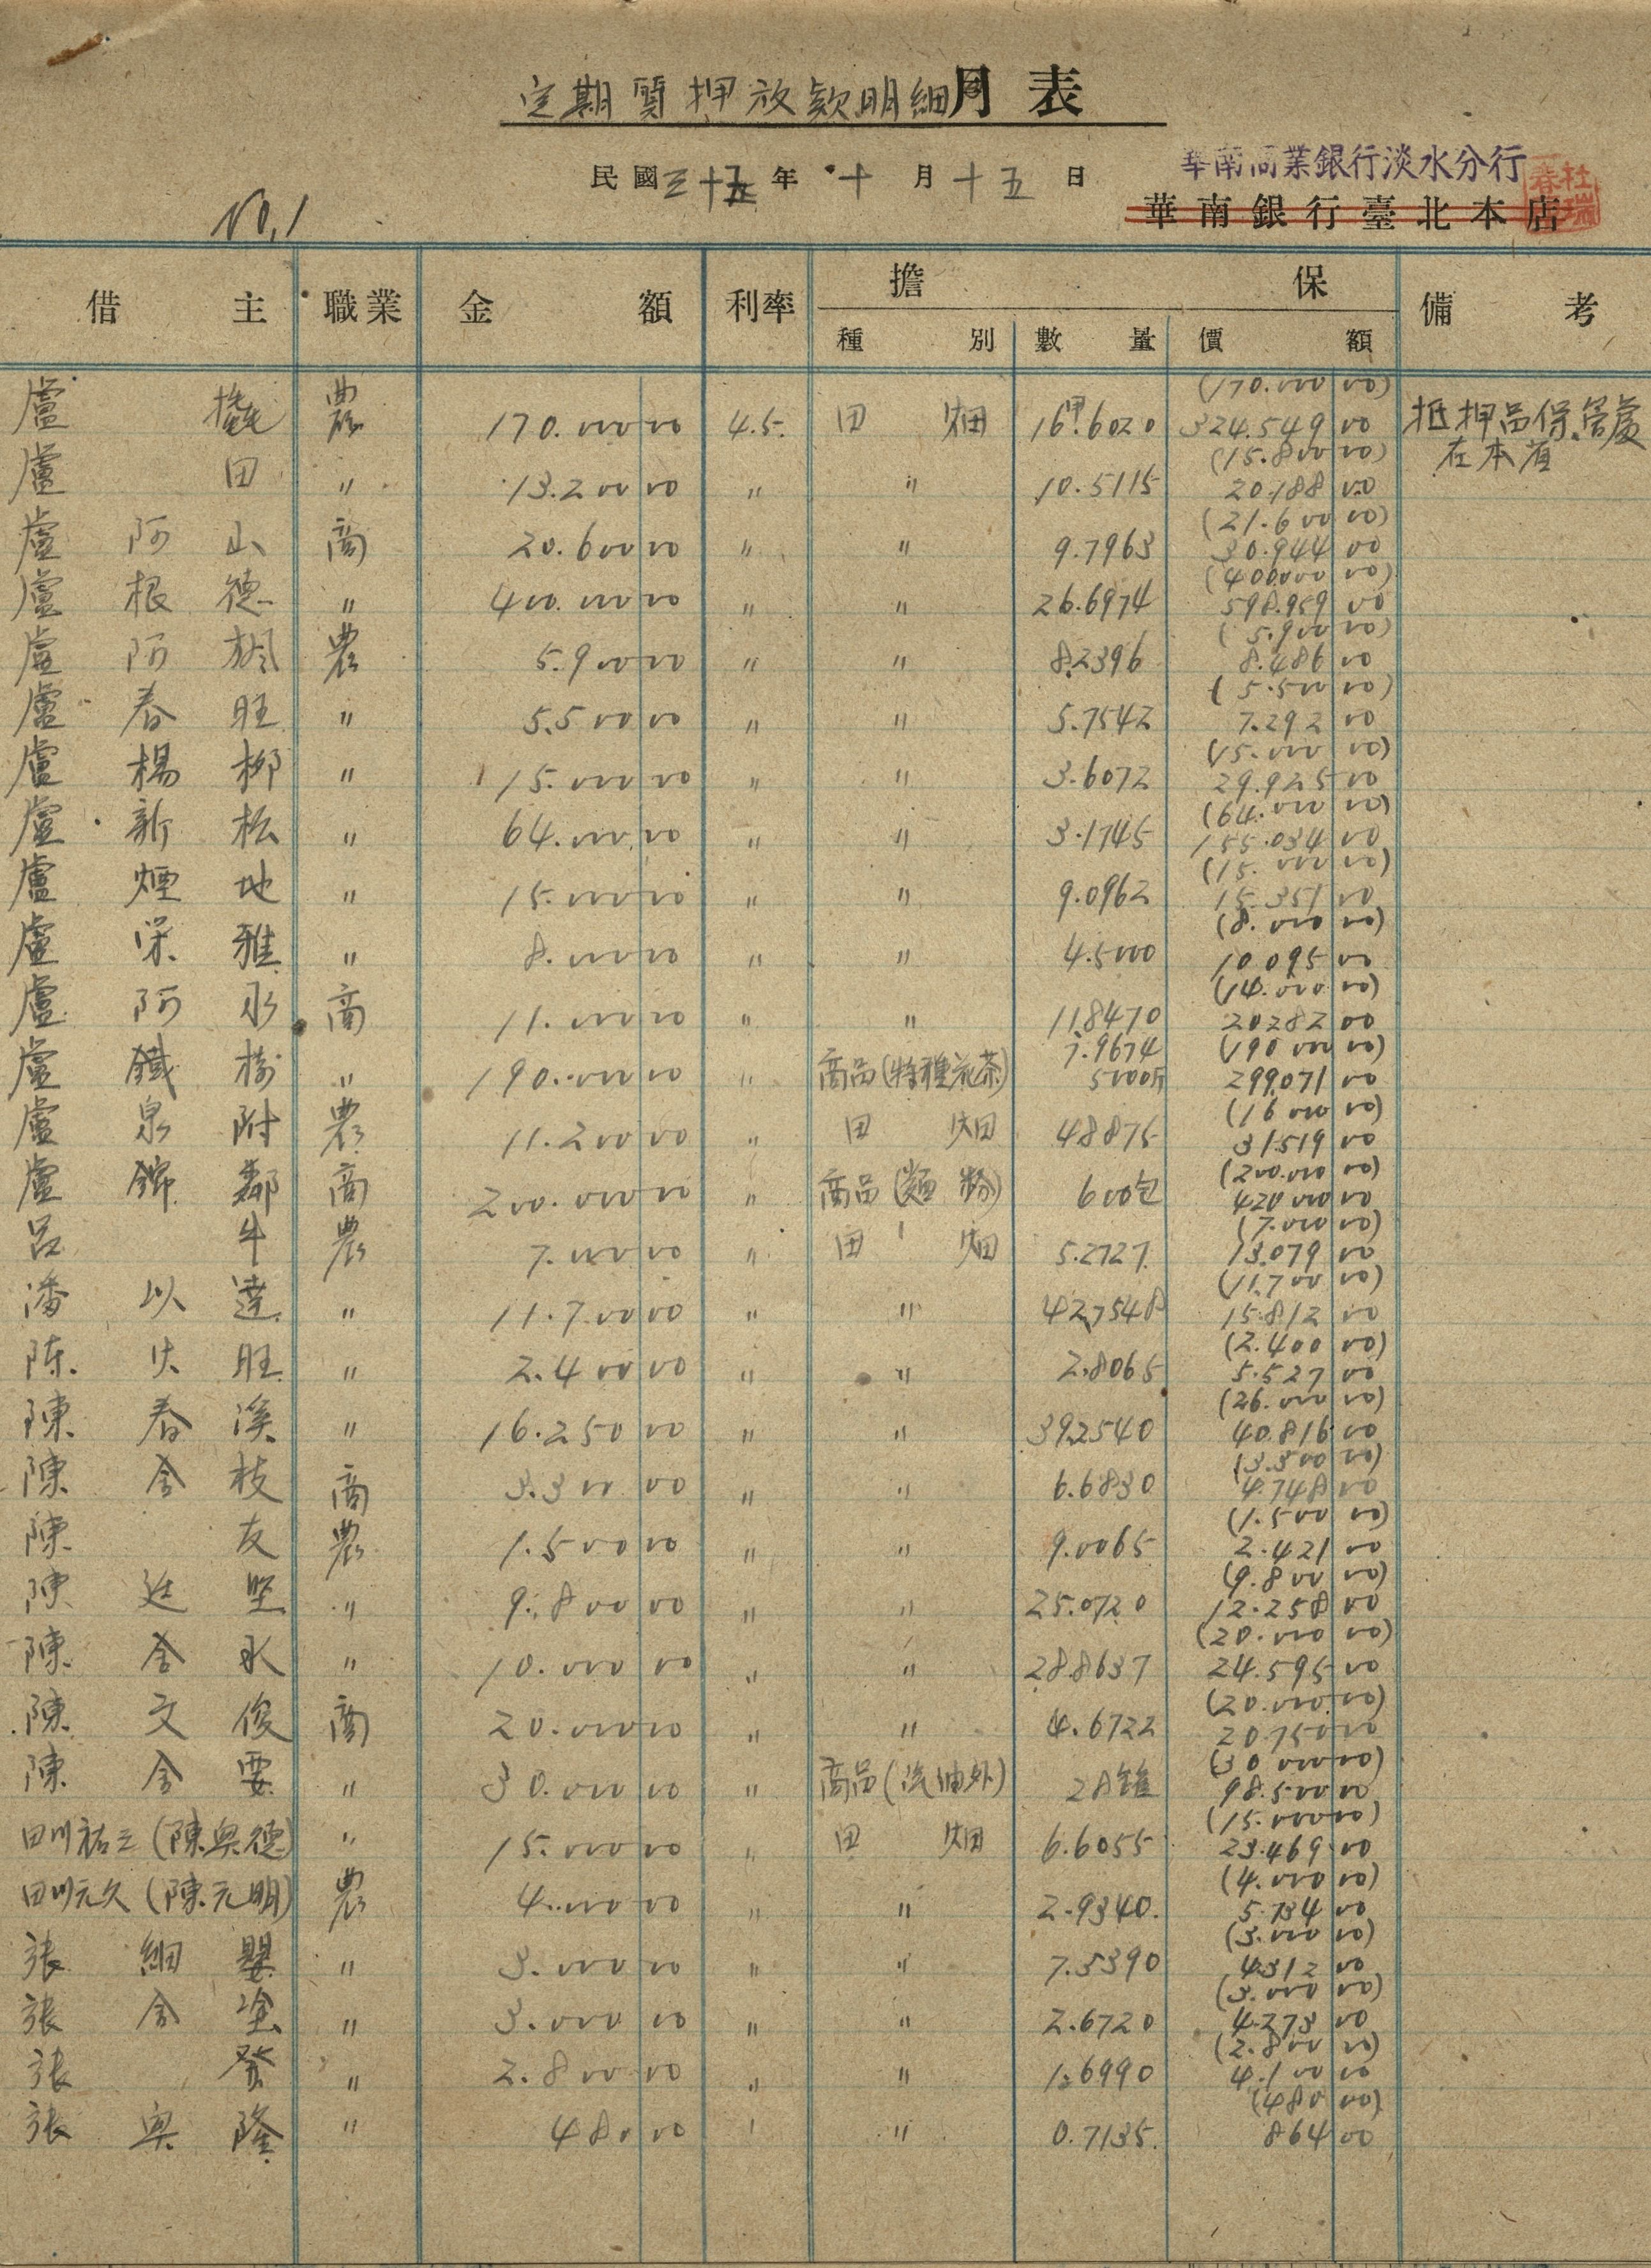 定期質押放款明細月表
民國三十五年 十月十五日
華南商業銀行淡水分行
華南銀行臺北本店
杜瑞春
No.1
借主 職業 金額 利率 擔保 備考
種別 數量 價額
(170.000 00)
盧 農 170.000 00 4.5. 田 畑 16甲.6020 324.549 00 抵押品保管處
在本省
(15.800 00)
盧 田 〃 13.200 00 〃 〃 10.5115 20.188 00
(21.600 00)
盧 阿 山 商 20.600 00 〃 〃 9.7963 30.944 00
(400000 00)
盧 根 德 〃 400.000 00 〃 〃 26.6974 598.959 00
(5.900 00)
盧 阿 楓 農 5.900 00 〃 〃 8.2396 8.486 00
(5.500 00)
盧 春 旺 〃 5.500 00 〃 〃 5.7542 7.292 00
(15.000 00)
盧 楊 柳 〃 15.000 00 〃 〃 3.6072 29.925 00
(64.000 00)
盧 新 松 〃 64.000 00 〃 〃 3.1745 155.034 00
(15.000 00)
盧 煙 地 〃 15.000 00 〃 〃 9.0962 15.351 00
(8.000 00)
盧 栄 雅 〃 8.000 00 〃 〃 4.5000 10.095 00
(14.000 00)
盧 阿 水 商 11.000 00 〃 〃 11.8470 20282 00
7.9674 (190 000 00)
盧 鐵 樹 〃 190.000 00 〃 商品(特種荒茶) 5000斤 299.071 00
(16 000 00)
盧 泉 附 農 11.200 00 〃 田 畑 48875 31.519 00
(200.000 00)
盧 錦 鄰 商 200.000 00 〃 商品(麵粉) 600包 420 000 00
(7.000 00)
呂 牛 農 7.000 00 〃 田 畑 5.2727 13.079 00
(11.700 00)
潘 以 達 〃 11.700 00 〃 〃 42.7548 15.812 00
(2.400 00)
陳 火 旺 〃 2.400 00 〃 〃 2.8065 5.527 00
(26.000 00)
陳 春 溪 〃 16.250 00 〃 〃 39.2540 40.816 00
(3.300 00)
陳 舍 枝 商 3.300 00 〃 〃 6.6830 4.748 00
(1.500 00)
陳 友 農 1.500 00 〃 〃 9.0065 2.421 00
(9.800 00)
陳 廷 坚 〃 9.800 00 〃 〃 25.0720 12.258 00
(20.000 00)
陳 舍 永 〃 10.000 00 〃 〃 28.8637 24.595 00
(20.000 00)
陳 文 俊 商 20.000 00 〃 〃 4.6722 20.750 00
(30 000 00)
陳 舍 要 〃 30.000 00 〃 商品(汽油外) 28罐 98.500 00
(15.000 00)
田川祐三(陳奥德) 〃 15.000 00 〃 田 畑 6.6055 23.469 00
(4.000 00)
田川元久(陳元明) 農 4.000 00 〃 〃 2.9340. 5.734 00
(3.000 00)
張 細 嬰 〃 3.000 00 〃 〃 7.3390 4.312 00
(3.000 00)
張 舍 塗 〃 3.000 00 〃 〃 2.6720 4.273 00
(2.800 00)
張 發 〃 2.800 00 〃 〃 1.6990 4.100 00
(480 00)
張 奥 隆 〃 480 00 〃 〃 0.7135. 864 00